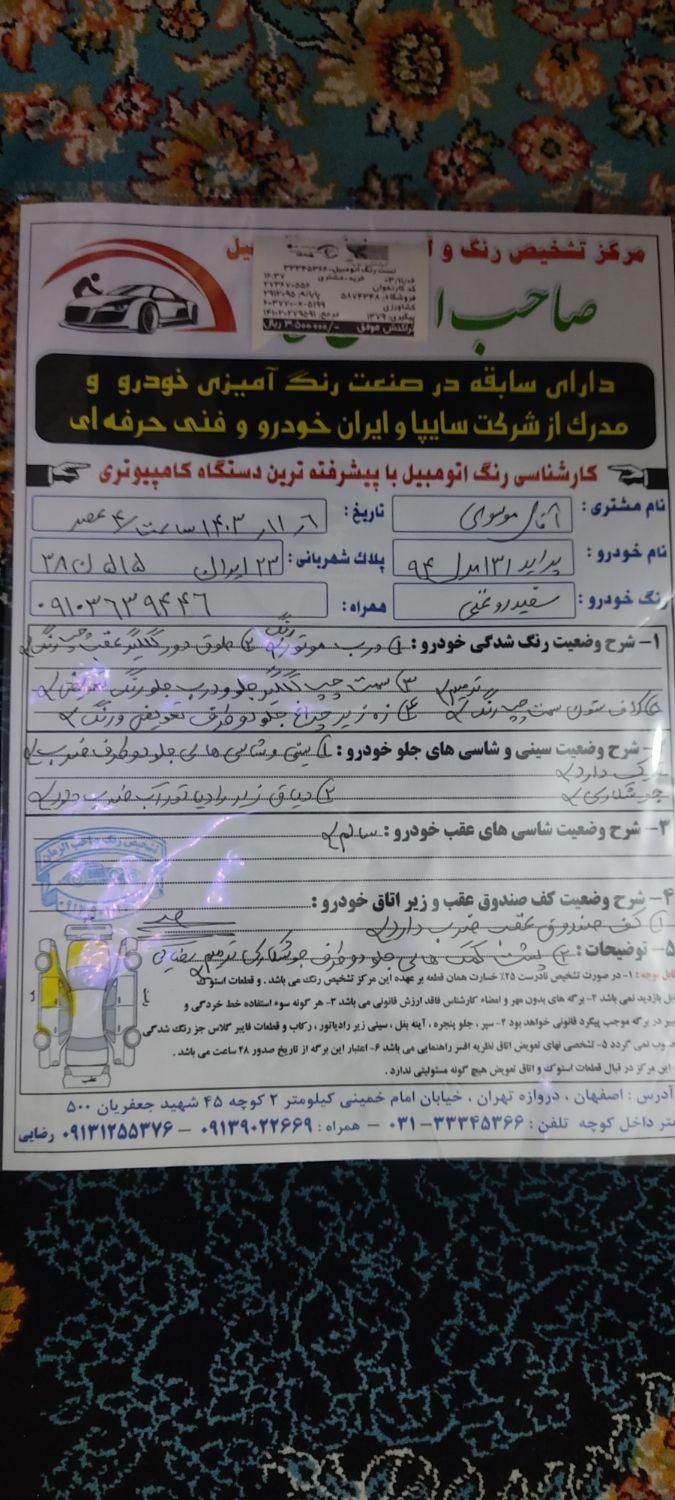 مرکز تشخیص رنگ و
تست رنگ اتومبیل-۳۳۳۴۵۳۶۶
خرید-مشتری
۰۳/۱۱/۰۶ ۱۶:۳۷
فروشگاه: ۵۸۷۴۳۴۸
کشاورزی
پیگیری: ۱۳۷۹
تراکنش موفق ۳،۵۰۰،۰۰۰/- ریال
صاحب
دارای سابقه در صنعت رنگ آمیزی خودرو و
مدرک از شرکت سایپا و ایران خودرو و فنی حرفه ای
کارشناسی رنگ اتومبیل با پیشرفته ترین دستگاه کامپیوتری
نام مشتری : آقای موسوی تاریخ : ۱۴۰۳/۱۱/۶ ساعت ۴ عصر
نام خودرو : پراید ۱۳۱ مدل ۹۴ پلاک شهربانی : ۲۳ ایران ۵۱۵ ن ۳۸
رنگ خودرو : سفید روغنی همراه : ۰۹۱۰۳۶۳۹۴۴۶
۱- شرح وضعیت رنگ شدگی خودرو : ۱ درب موتور رنگ ۲ دور گلگیر عقب چپ رنگ
۳ سمت چپ گلگیر جلو و درب جلو رنگ تعویض
۵ کلاف ستون سمت چپ رنگ ترمیم ۴ زه زیر چراغ جلو دو طرف تعویض و رنگ
۲- شرح وضعیت سینی و شاسی های جلو خودرو : ۱ سینی و شاسی های جلو دو طرف ضرب
ترک دارد
جوشکاری ۲ دیاق زیر رادیاتور آب ضرب دارد
۳- شرح وضعیت شاسی های عقب خودرو : سالم
تشخیص رنگ صاحب الزمان
۴- شرح وضعیت کف صندوق عقب و زیر اتاق خودرو :
۱ کف صندوق عقب ضرب دارد
۵- توضیحات : ۲ پشت کمک های جلو دو طرف جوشکاری ترمیم
قابل توجه : ۱- در صورت تشخیص نادرست ۲۵٪ خسارت همان قطعه بر عهده این مرکز تشخیص رنگ می باشد . و قطعات استوک
قابل بازدید نمی باشد ۲- برگه های بدون مهر و امضاء کارشناس فاقد ارزش قانونی می باشد ۳- هر گونه سوء استفاده خط خوردگی و
تغییر در برگه موجب پیگرد قانونی خواهد بود ۴- سپر ، جلو پنجره ، آینه بغل ، سینی زیر رادیاتور ، رکاب و قطعات فایبر گلاس جز رنگ شدگی
محسوب نمی گردد ۵- تشخصی نهای تعویض اتاق نظریه افسر راهنمایی می باشد ۶- اعتبار این برگه از تاریخ صدور ۴۸ ساعت می باشد .
این مرکز در قبال قطعات استوک و اتاق تعویض هیچ گونه مسئولیتی ندارد .
عقب
آدرس : اصفهان ، دروازه تهران ، خیابان امام خمینی کیلومتر ۲ کوچه ۴۵ شهید جعفریان ۵۰۰
متر داخل کوچه تلفن : ۳۳۳۴۵۳۶۶-۰۳۱ - همراه : ۰۹۱۳۹۰۲۲۶۶۹ - ۰۹۱۳۱۲۵۵۳۷۶ رضایی